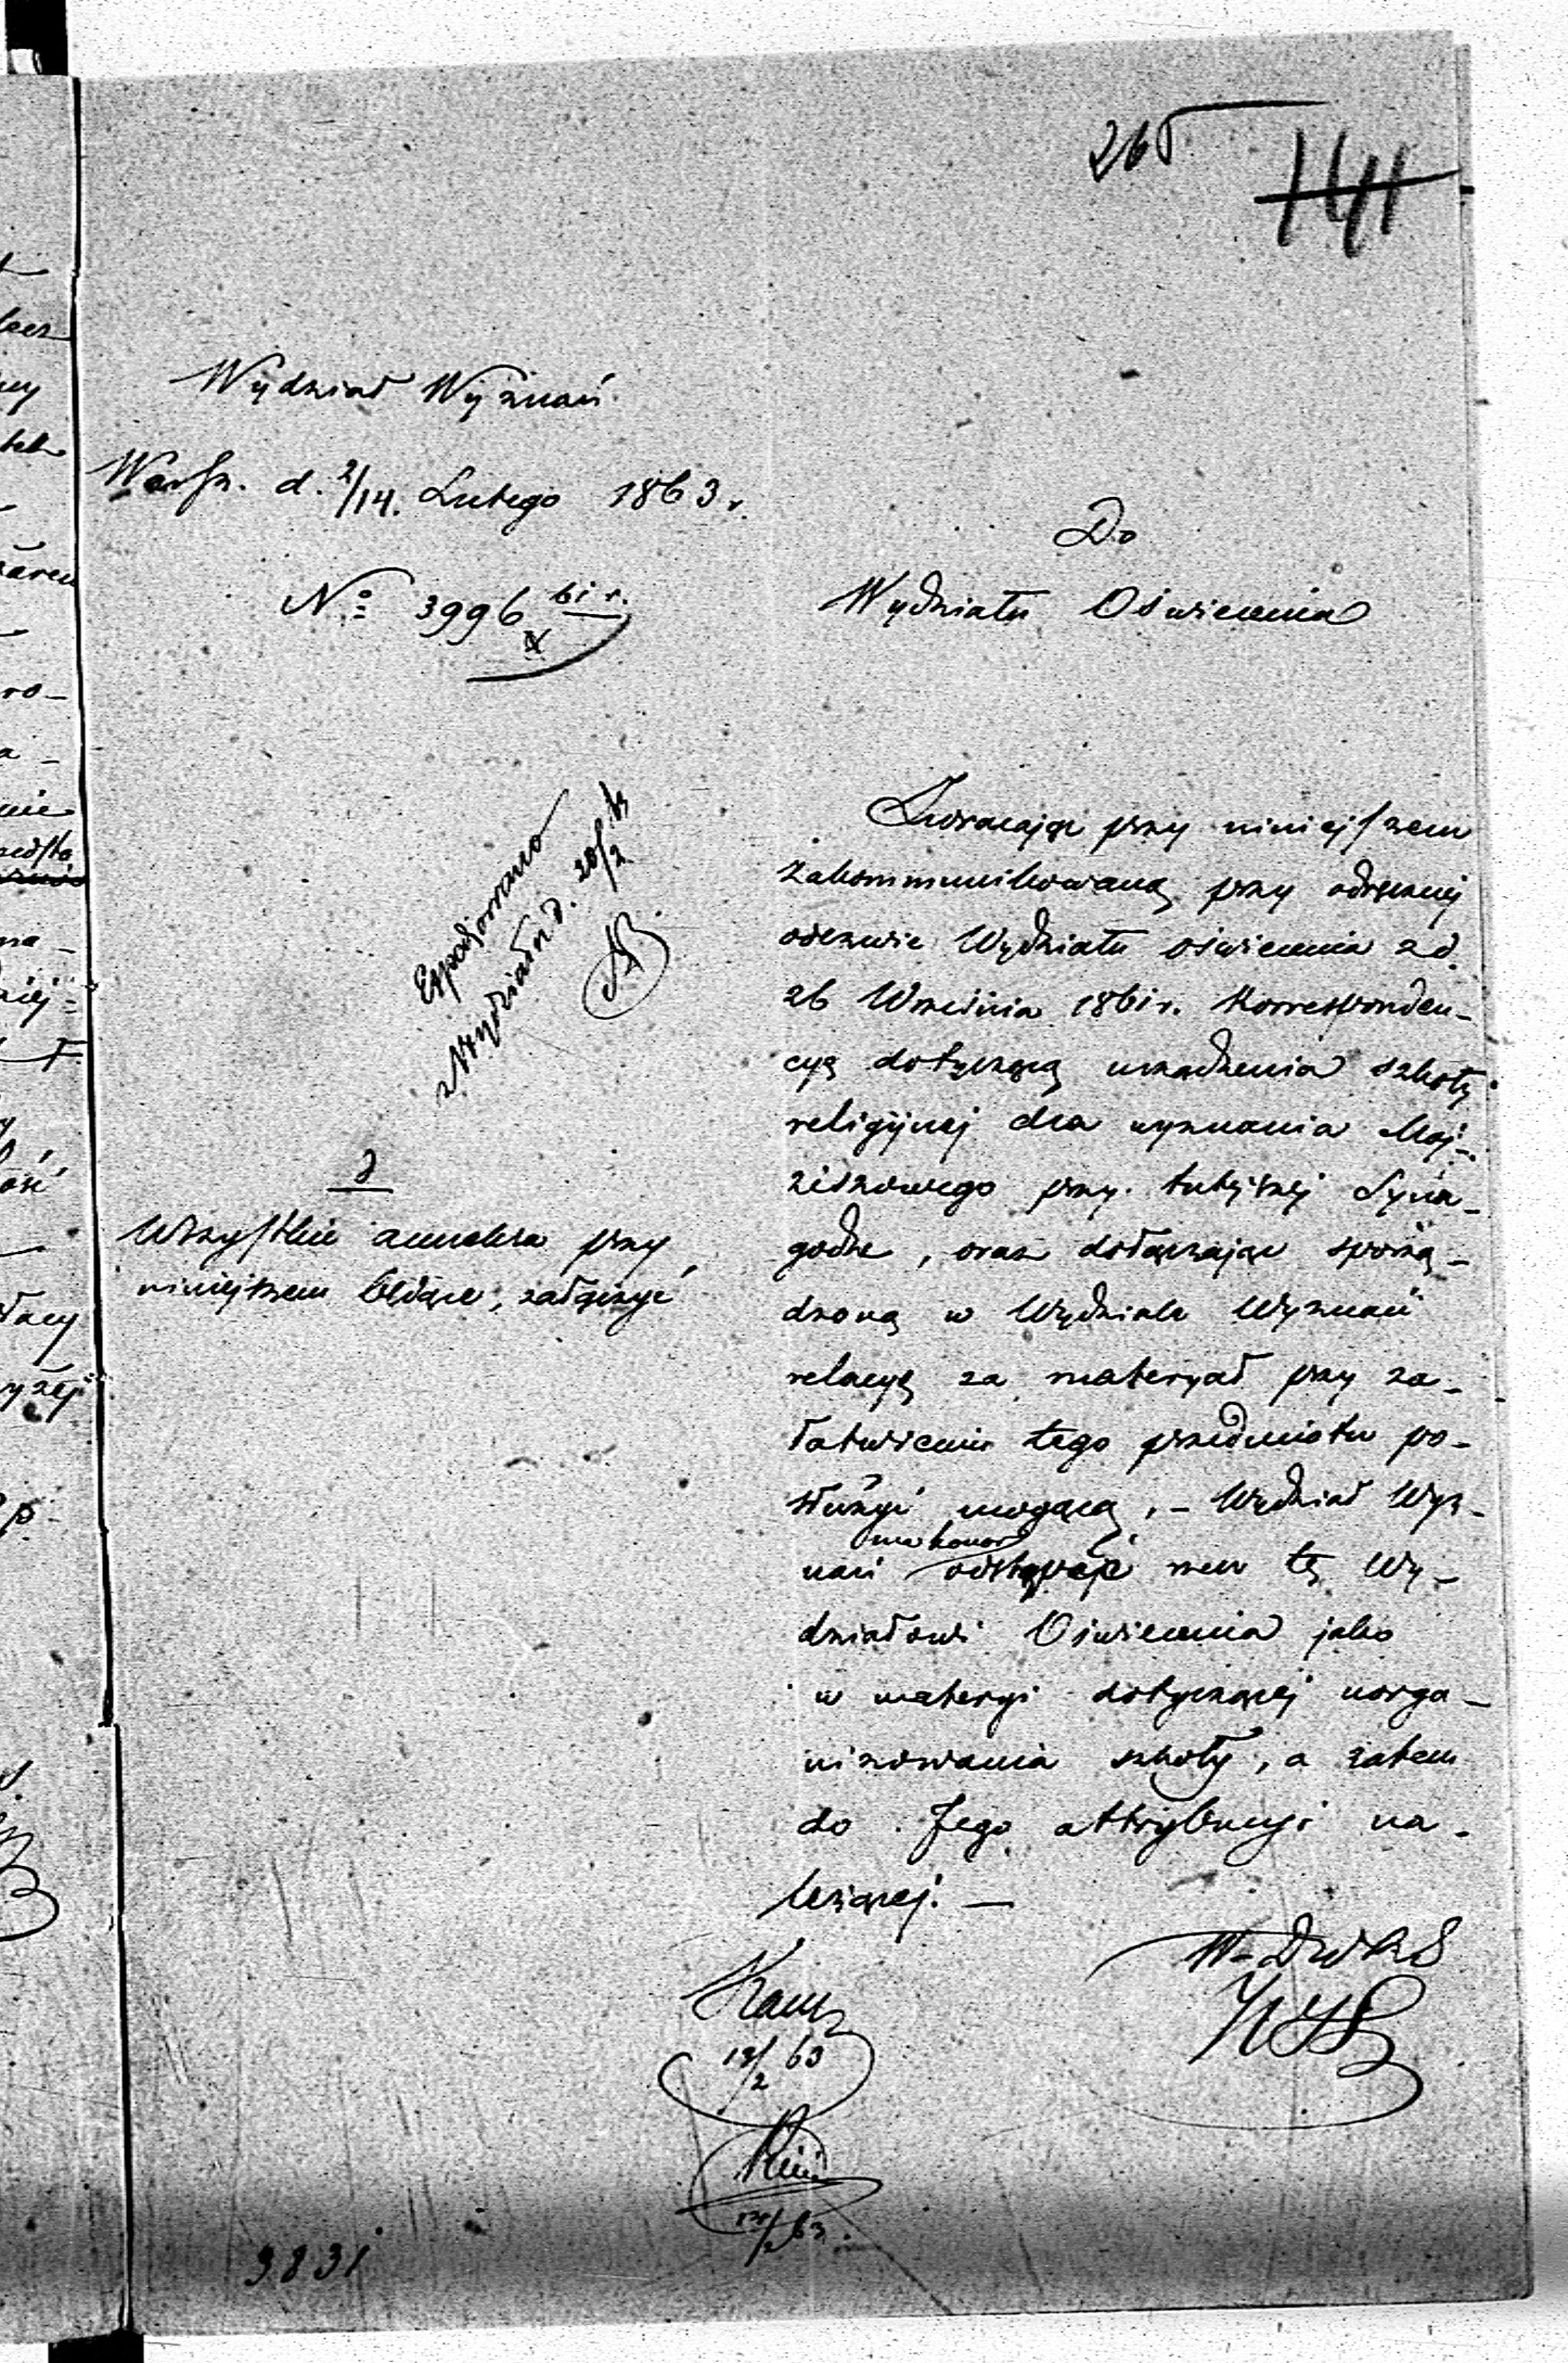 265
141
Wydział Wyznań
Warsz. d. 2/14. Lutego 1863 r.
No 3996 61 r.
Do
Wydziału Oświecenia
Expedjowano
z Wydziału d. 20/2 63
Wszystkie annexa przy
niniejszem będące, załączyć
Zwracając przy niniejszem
zakommunikowaną przy odręcznej
odezwie Wydziału Oświecenia z d.
26 Września 1861 r. Korresponden-
cyą dotyczącą urządzenia szkoły
religijnej dla wyznania Moj-
żeszowego przy tutejszej Syna-
godze, oraz dołączając sporzą-
dzoną w Wydziale Wyznań
relacyą za materyał przy za-
łatwieniu tego przedmiotu po-
służyć mogącą, – Wydział Wyz-
ma honor
nań odstąpić tę Wy-
działowi Oświecenia jako
w materyi dotyczącej uorga-
nizowania szkoły, a zatem
do Jego attrybucyi na-
leżącej. —
63
2
63.
3831